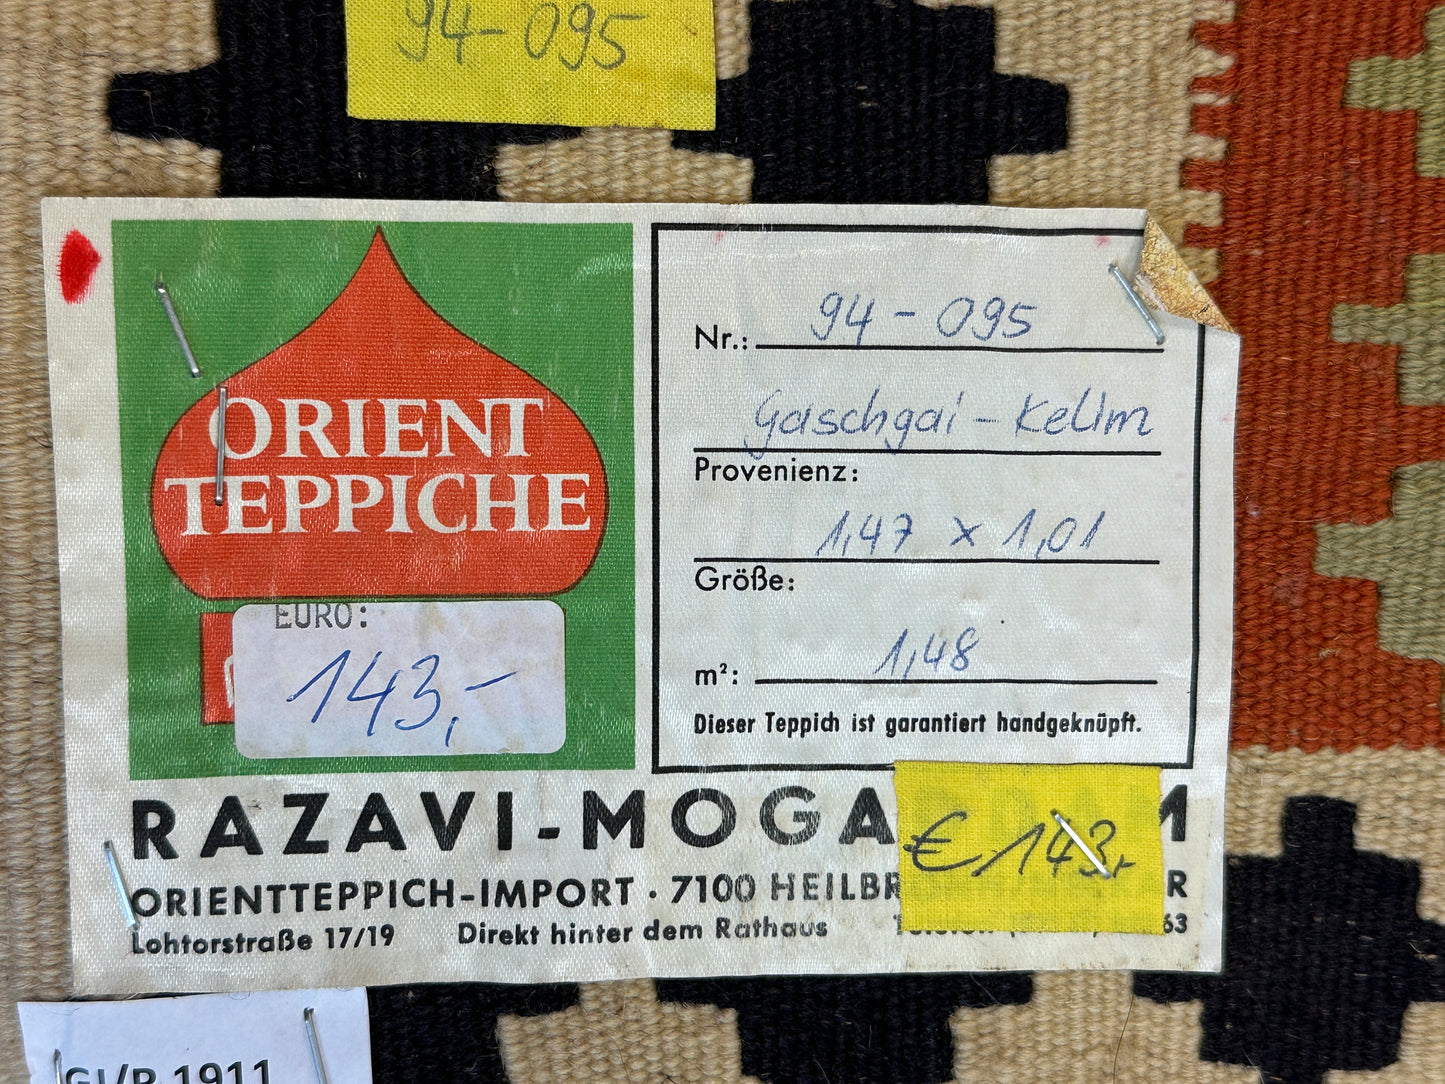 94-095
ORIENT
TEPPICHE
EURO:
143,-
Nr.: 94-095
Gaschgai-Kelim
Provenienz:
1,47 x 1,01
Größe:
m²: 1,48
Dieser Teppich ist garantiert handgeknüpft.
RAZAVI-MOGA
€ 143,-
ORIENTTEPPICH-IMPORT · 7100 HEILBR
Lohtorstraße 17/19 Direkt hinter dem Rathaus 63
GI/P 1911